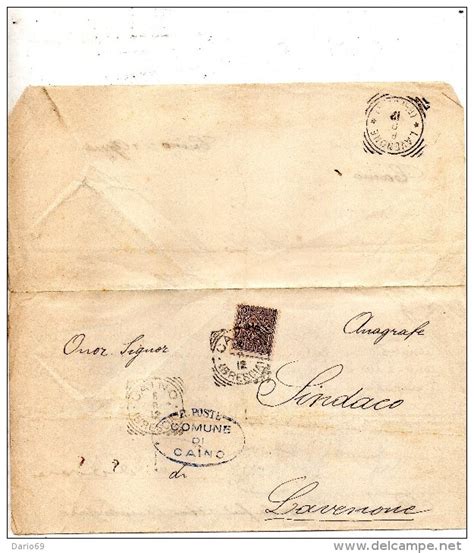 LAVENONE
12
Anagrafe
Onor. Signor
12
(BRESCIA)
CAINO
8
12
(BRESCIA)
Sindaco
R. POSTE
COMUNE
DI
CAINO
di
Lavenone
Dario69
www.delcampe.net